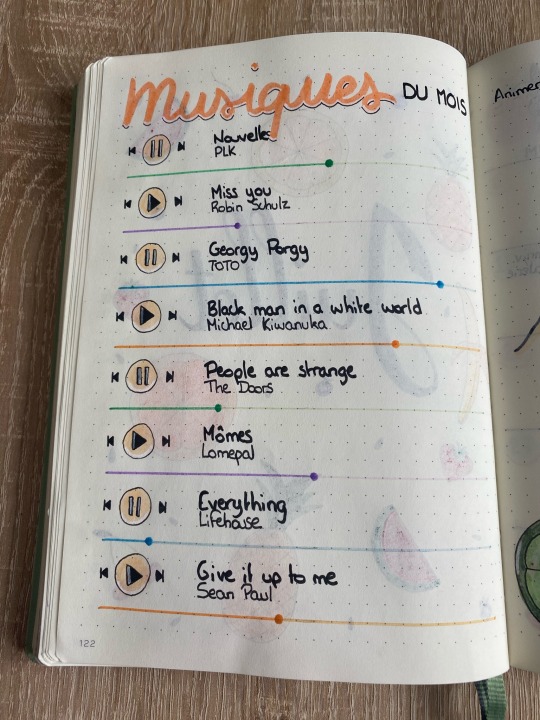 Musiques DU MOIS
Nouvelles
PLK
Miss you
Robin Schulz
Georgy Porgy
TOTO
Black man in a white world
Michael Kiwanuka
People are strange
The Doors
Mômes
Lomepal
Everything
Lifehouse
Give it up to me
Sean Paul
122